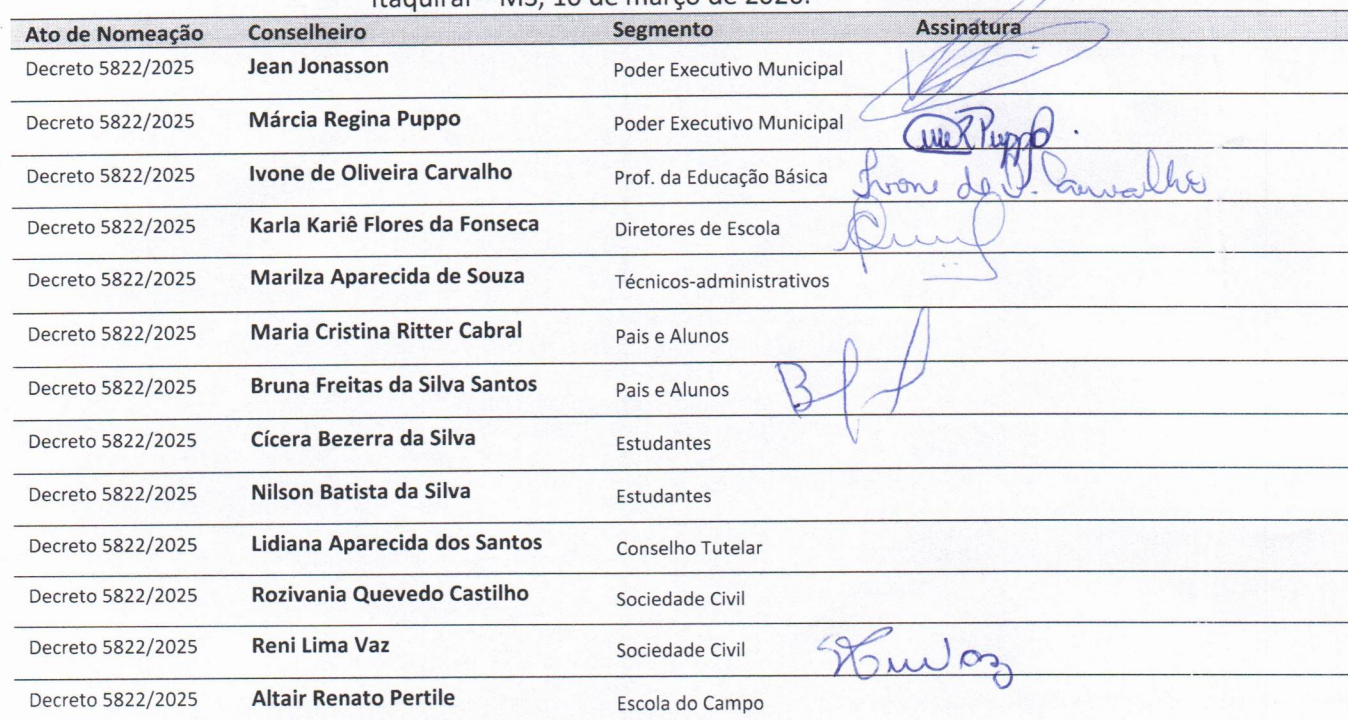 Itaquiraí – MS, 16 de março de 2026.
Ato de Nomeação Conselheiro Segmento Assinatura
Decreto 5822/2025 Jean Jonasson Poder Executivo Municipal
Decreto 5822/2025 Márcia Regina Puppo Poder Executivo Municipal Puppo.
Decreto 5822/2025 Ivone de Oliveira Carvalho Prof. da Educação Básica Ivone de O. Carvalho
Decreto 5822/2025 Karla Kariê Flores da Fonseca Diretores de Escola
Decreto 5822/2025 Marilza Aparecida de Souza Técnicos-administrativos
Decreto 5822/2025 Maria Cristina Ritter Cabral Pais e Alunos
Decreto 5822/2025 Bruna Freitas da Silva Santos Pais e Alunos
Decreto 5822/2025 Cícera Bezerra da Silva Estudantes
Decreto 5822/2025 Nilson Batista da Silva Estudantes
Decreto 5822/2025 Lidiana Aparecida dos Santos Conselho Tutelar
Decreto 5822/2025 Rozivania Quevedo Castilho Sociedade Civil
Decreto 5822/2025 Reni Lima Vaz Sociedade Civil
Decreto 5822/2025 Altair Renato Pertile Escola do Campo